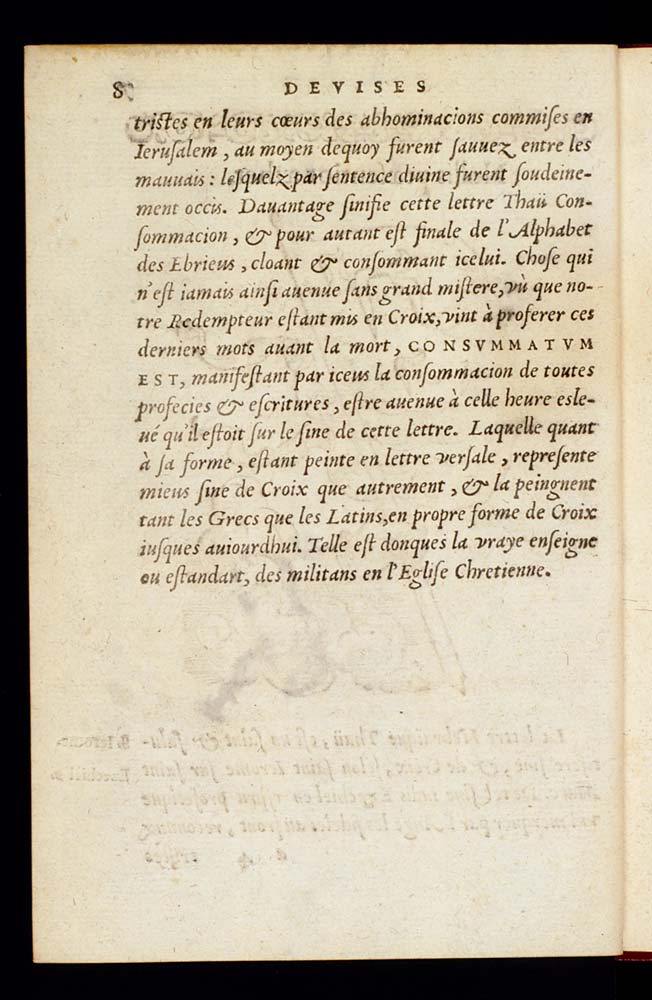 8 DEVISES
tristes en leurs cœurs des abhominacions commiſes en
Ieruſalem, au moyen dequoy furent ſauuez entre les
mauuais: leſquelz par ſentence diuine furent ſoudeine-
ment occis. Dauantage ſinifie cette lettre Thaü Con-
ſommacion, & pour autant eſt finale de l'Alphabet
des Ebrieus, cloant & conſommant icelui. Choſe qui
n'eſt iamais ainſi auenue ſans grand miſtere, vù que no-
tre Redempteur eſtant mis en Croix, vint à proferer ces
derniers mots auant la mort, CONSVMMATVM
EST, manifeſtant par iceus la conſommacion de toutes
profecies & eſcritures, eſtre auenue à celle heure esle-
ué qu'il eſtoit ſur le ſine de cette lettre. Laquelle quant
à ſa forme, eſtant peinte en lettre verſale, repreſente
mieus ſine de Croix que autrement, & la peingnent
tant les Grecs que les Latins, en propre forme de Croix
iuſques auiourdhui. Telle eſt donques la vraye enſeigne
ou eſtandart, des militans en l'Egliſe Chretienne.